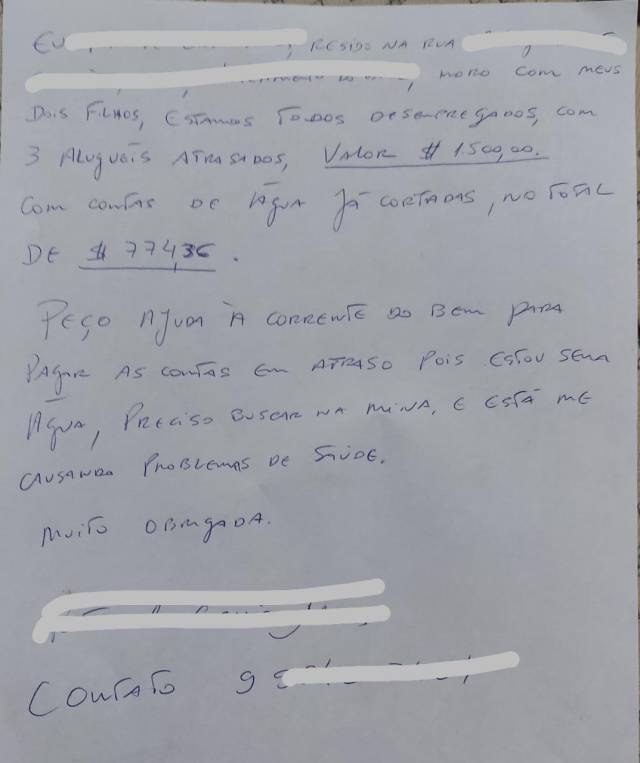 EU , RESIDO NA RUA
, MORO COM MEUS
DOIS FILHOS, ESTAMOS TODOS DESEMPREGADOS, COM
3 ALUGUÉIS ATRASADOS, VALOR $ 1.500,00.
COM CONTAS DE ÁGUA JÁ CORTADAS, NO TOTAL
DE $ 774,36.
PEÇO AJUDA À CORRENTE DO BEM PARA
PAGAR AS CONTAS EM ATRASO POIS ESTOU SEM
ÁGUA, PRECISO BUSCAR NA MINA, E ESTÁ ME
CAUSANDO PROBLEMAS DE SAÚDE.
MUITO OBRIGADA.
CONTATO 9